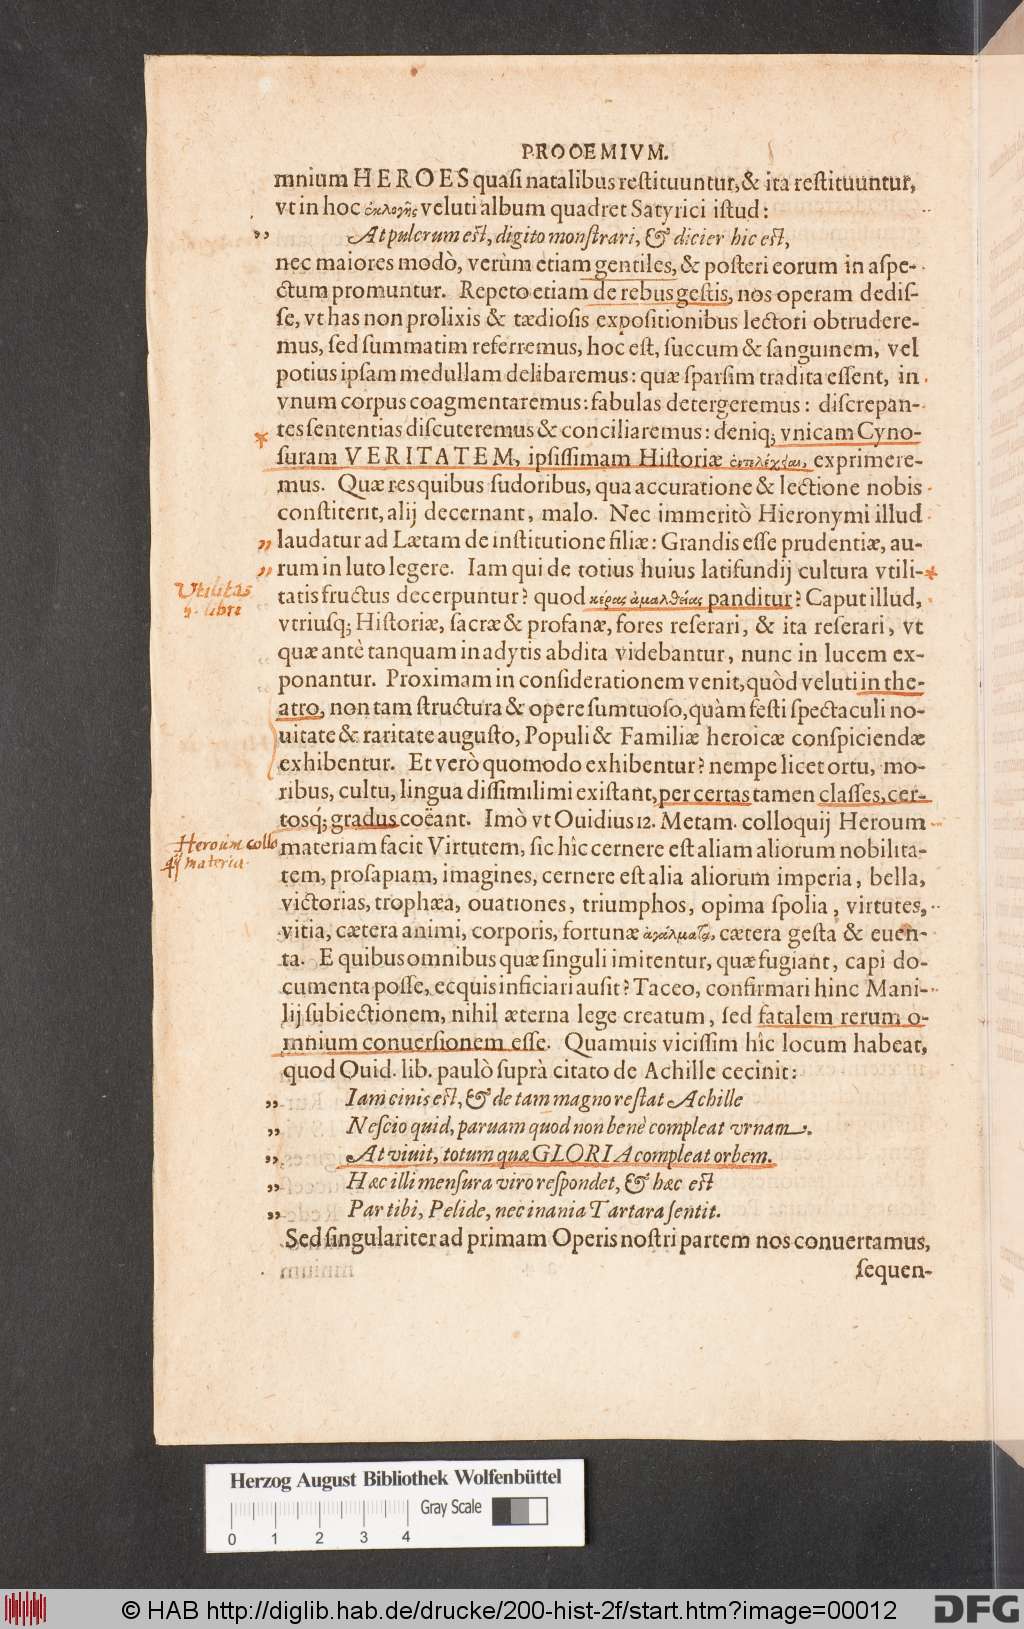 PROOEMIVM.
mnium HEROES quasi natalibus restituuntur, & ita restituuntur,
vt in hoc ἐκλογῆς veluti album quadret Satyrici istud:
„ At pulcrum est, digito monstrari, & dicier hic est,
nec maiores modò, verùm etiam gentiles, & posteri eorum in aspe-
ctum promuntur. Repeto etiam de rebus gestis, nos operam dedis-
se, vt has non prolixis & tædiosis expositionibus lectori obtrudere-
mus, sed summatim referremus, hoc est, succum & sanguinem, vel
potius ipsam medullam delibaremus: quæ sparsim tradita essent, in
vnum corpus coagmentaremus: fabulas detergeremus: discrepan-
* tes sententias discuteremus & conciliaremus: deniq; vnicam Cyno-
suram VERITATEM, ipsissimam Historiæ exprimere-
mus. Quæ res quibus sudoribus, qua accuratione & lectione nobis
constiterit, alij decernant, malo. Nec immeritò Hieronymi illud
„ laudatur ad Lætam de institutione filiæ: Grandis esse prudentiæ, au-
„ rum in luto legere. Iam qui de totius huius latifundij cultura vtili- *
Utilitas
h. libri
tatis fructus decerpuntur? quod κέρας ἀμαλθείας panditur? Caput illud,
vtriusq; Historiæ, sacræ & profanæ, fores reserari, & ita reserari, vt
quæ antè tanquam in adytis abdita videbantur, nunc in lucem ex-
ponantur. Proximam in considerationem venit, quòd veluti in the-
atro, non tam structura & opere sumtuoso, quàm festi spectaculi no-
uitate & raritate augusto, Populi & Familiæ heroicæ conspiciendæ
exhibentur. Et verò quomodo exhibentur? nempe licet ortu, mo-
ribus, cultu, lingua dissimilimi existant, per certas tamen classes, cer-
tosq; gradus coëant. Imò vt Ouidius 12. Metam. colloquij Heroum
Heroum collo
qij materia.
materiam facit Virtutem, sic hîc cernere est aliam aliorum nobilita-
tem, prosapiam, imagines, cernere est alia aliorum imperia, bella,
victorias, trophæa, ouationes, triumphos, opima spolia, virtutes,
vitia, cætera animi, corporis, fortunæ ἀγάλματα, cætera gesta & euen-
ta. E quibus omnibus quæ singuli imitentur, quæ fugiant, capi do-
cumenta posse, ecquis inficiari ausit? Taceo, confirmari hinc Mani-
lij subiectionem, nihil æterna lege creatum, sed fatalem rerum o-
mnium conuersionem esse. Quamuis vicissim hîc locum habeat,
quod Ouid. lib. paulò suprà citato de Achille cecinit:
„ Iam cinis est, & de tam magno restat Achille
„ Nescio quid, paruam quod non benè compleat vrnam.
„ At viuit, totum quæ GLORIA compleat orbem.
„ Hæc illi mensura viro respondet, & hæc est
„ Par tibi, Pelide, nec inania Tartara sentit.
Sed singulariter ad primam Operis nostri partem nos conuertamus,
sequen-
Herzog August Bibliothek Wolfenbüttel
Gray Scale
0 1 2 3 4
© HAB http://diglib.hab.de/drucke/200-hist-2f/start.htm?image=00012
DFG